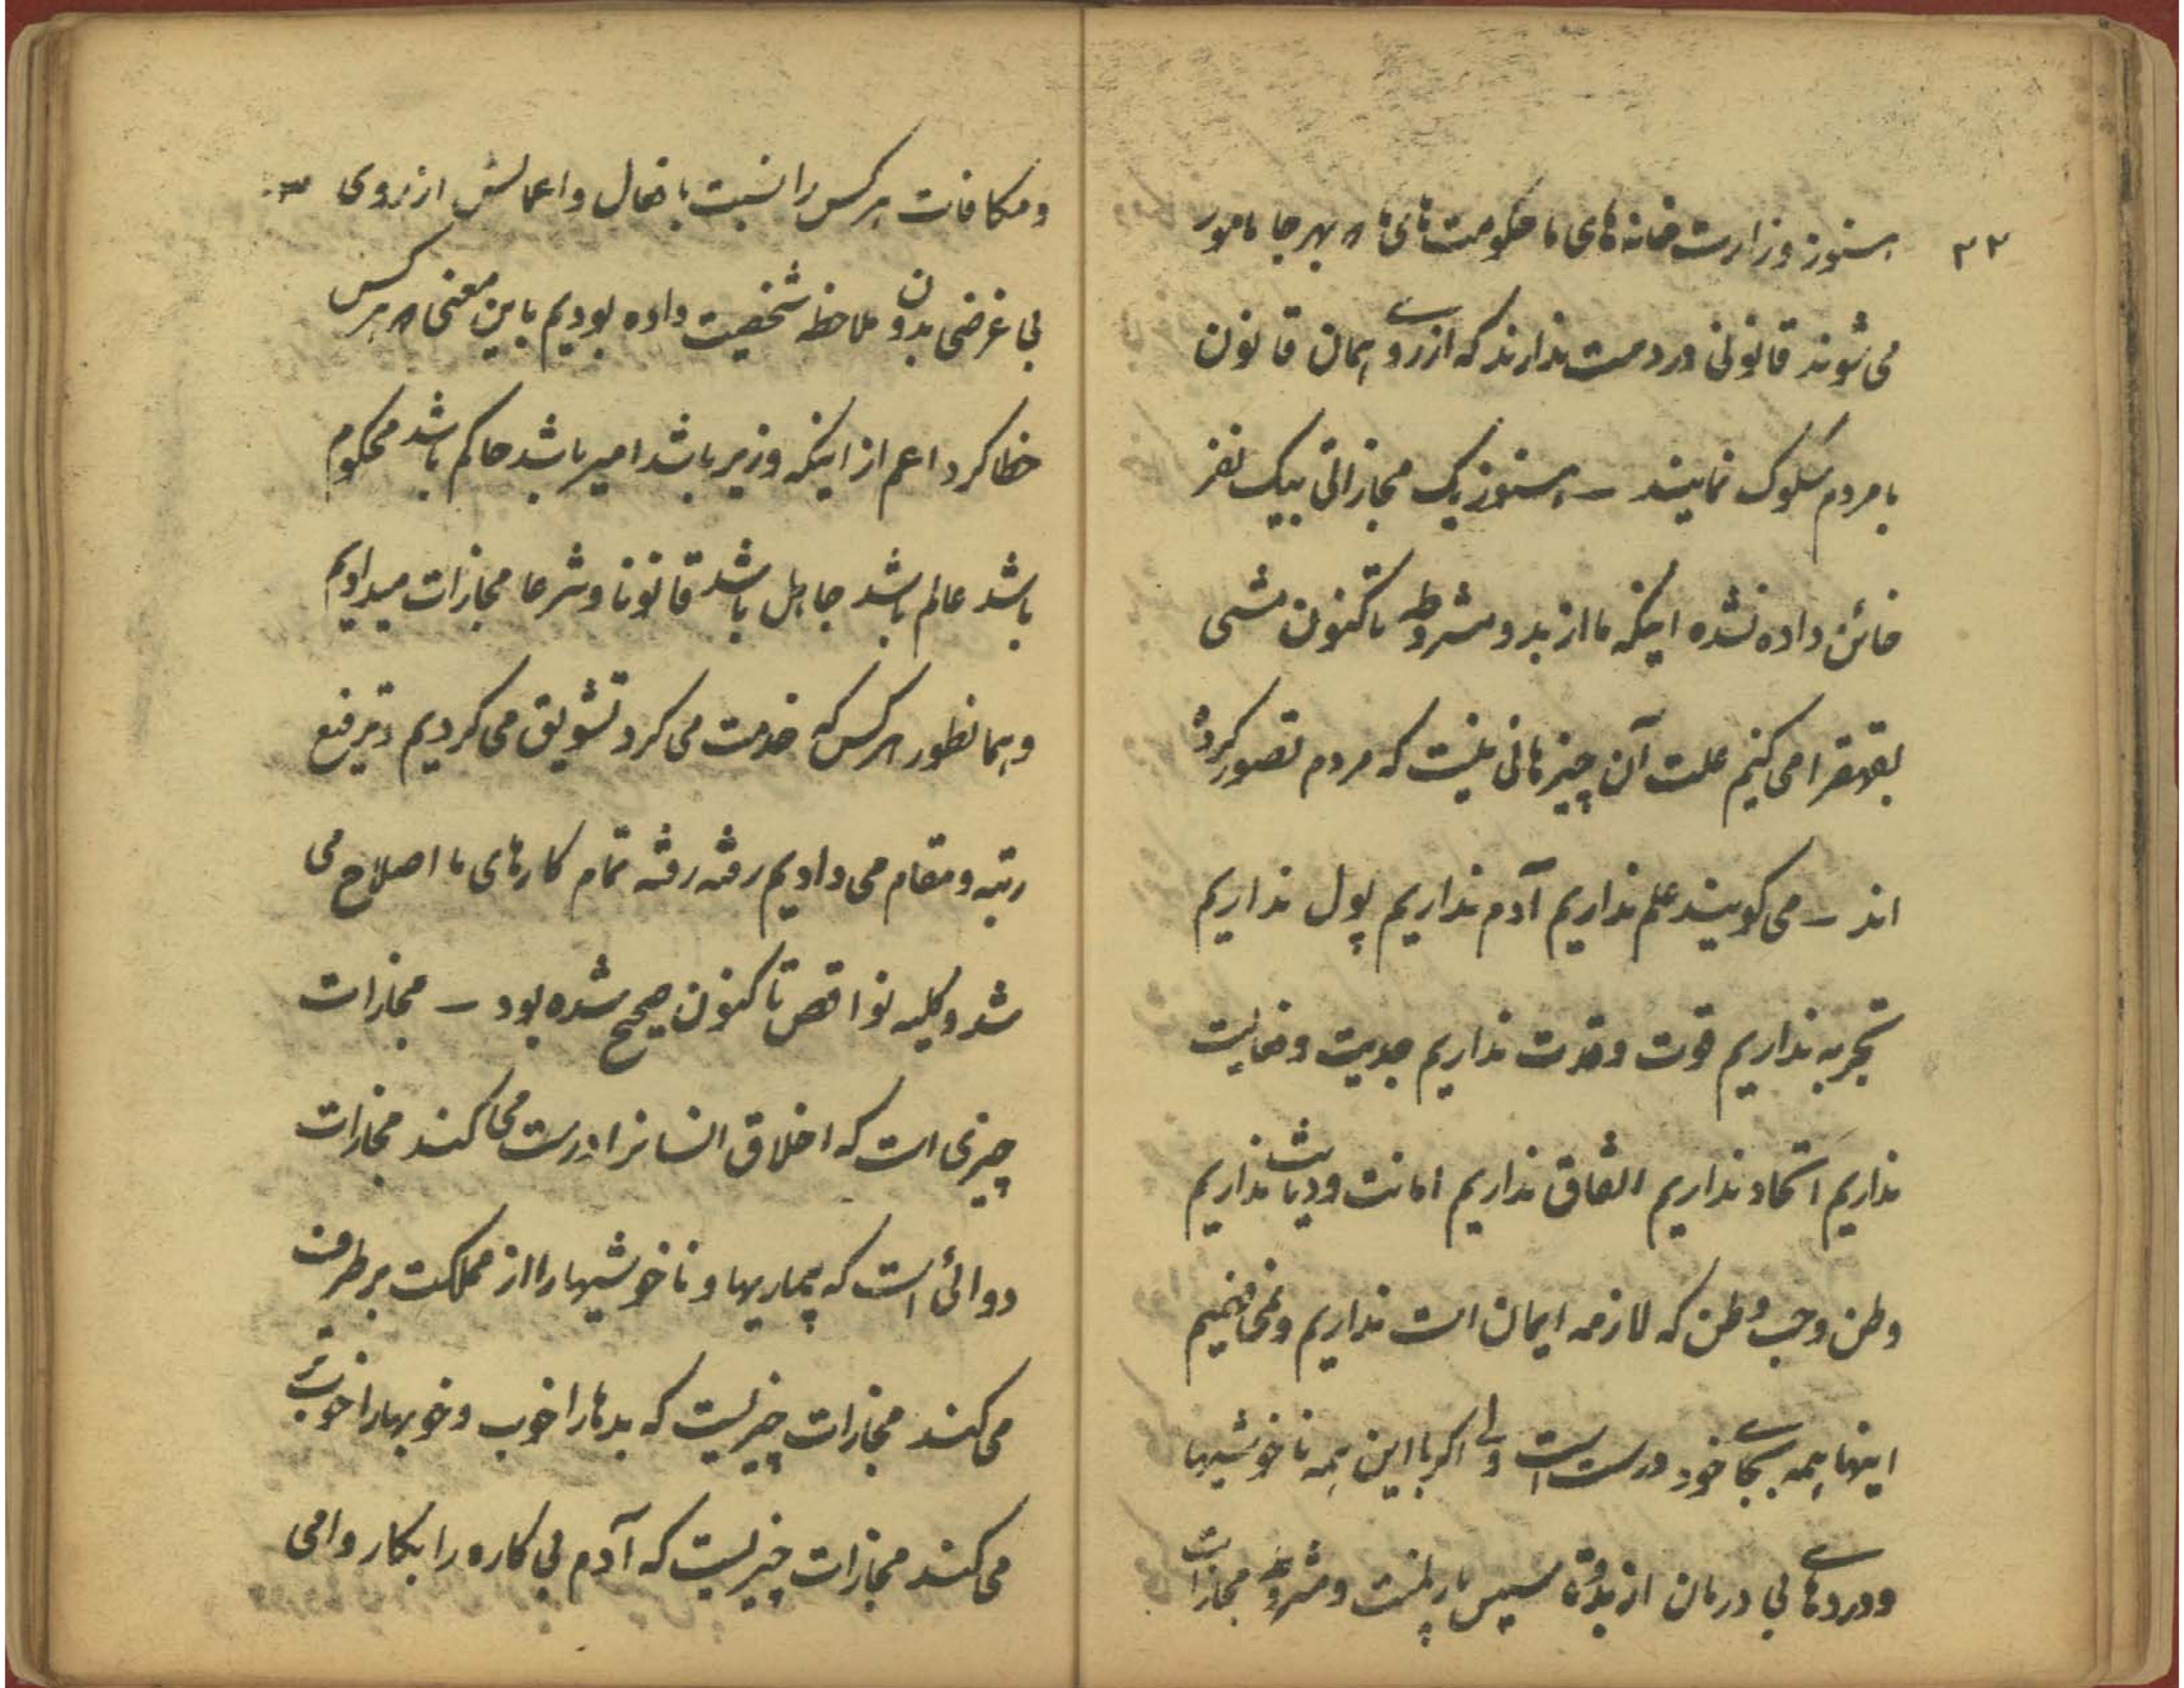 ۳۲
هنوز وزارت خانه های ما حکومت های ما بهر جا مامور
می شوند قانونی در دست ندارند که از روی همان قانون
با مردم سلوک نمایند – هنوز یک مجازاتی بیک نفر
خائن داده نشده اینکه ما از بدو مشروطه تا کنون مشی
بقهقرا می کنیم علت آن چیزهائی نیست که مردم تصور کرده
اند – می گویند علم نداریم آدم نداریم پول نداریم
تجربه نداریم قوت و قدرت نداریم جدیت و فعالیت
نداریم اتحاد نداریم اتفاق نداریم امانت و دیانت نداریم
وطن و حب وطن که لازمه ایمان است نداریم و نمی فهمیم
اینها همه بجای خود درست است ولی اگر با این همه ناخوشیها
و دردهای بی درمان از بدو تاسیس پارلمنت و مشروطه مجازات
و مکافات هر کس را نسبت بافعال و اعمالش از روی
بی غرضی بدون ملاحظه شخصیت داده بودیم باین معنی هر کس
خطا کرد اعم از اینکه وزیر باشد امیر باشد حاکم باشد محکوم
باشد عالم باشد جاهل باشد قانونا و شرعا مجازات میدادیم
و همانطور هر کس که خدمت می کرد تشویق می کردیم و ترفیع
رتبه و مقام می دادیم رفته رفته تمام کارهای ما اصلاح می
شد و کلیه نواقص تا کنون صحیح شده بود – مجازات
چیزی است که اخلاق انسانرا درست می کند مجازات
دوائی است که بیماریها و ناخوشیها را از مملکت بر طرف
می کند مجازات چیزیست که بدها را خوب و خوبها را خوب تر
می کند مجازات چیزیست که آدم بی کاره را بکار وا می